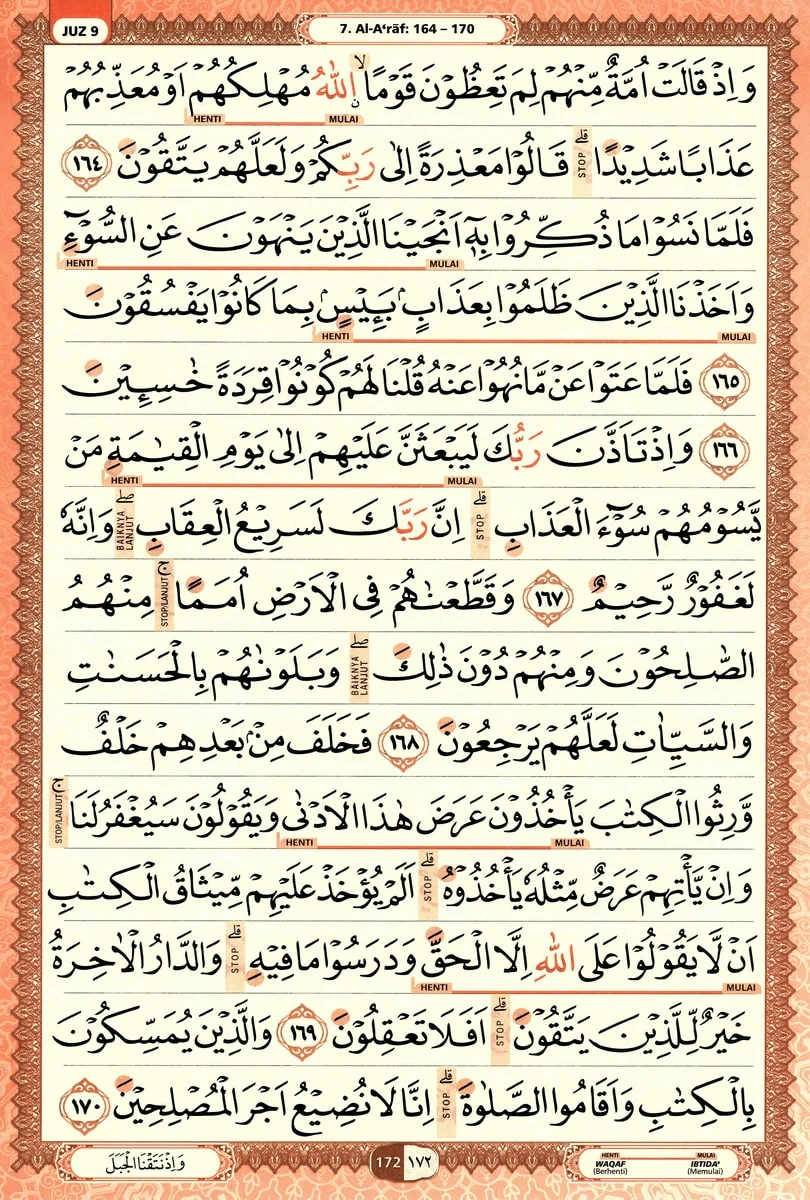 JUZ 9
7. Al-A'rāf: 164 – 170
وَاِذْ قَالَتْ اُمَّةٌ مِّنْهُمْ لِمَ تَعِظُوْنَ قَوْمًاۙ ۨاللّٰهُ مُهْلِكُهُمْ اَوْ مُعَذِّبُهُمْ
HENTI MULAI
عَذَابًا شَدِيْدًاۗ قَالُوْا مَعْذِرَةً اِلٰى رَبِّكُمْ وَلَعَلَّهُمْ يَتَّقُوْنَ ١٦٤
STOP
فَلَمَّا نَسُوْا مَا ذُكِّرُوْا بِهٖٓ اَنْجَيْنَا الَّذِيْنَ يَنْهَوْنَ عَنِ السُّوْۤءِ
HENTI MULAI
وَاَخَذْنَا الَّذِيْنَ ظَلَمُوْا بِعَذَابٍۢ بَـِٔيْسٍۢ بِمَا كَانُوْا يَفْسُقُوْنَ
HENTI MULAI
١٦٥ فَلَمَّا عَتَوْا عَنْ مَّا نُهُوْا عَنْهُ قُلْنَا لَهُمْ كُوْنُوْا قِرَدَةً خٰسِـِٕيْنَ
١٦٦ وَاِذْ تَاَذَّنَ رَبُّكَ لَيَبْعَثَنَّ عَلَيْهِمْ اِلٰى يَوْمِ الْقِيٰمَةِ مَنْ
HENTI MULAI
يَّسُوْمُهُمْ سُوْۤءَ الْعَذَابِۗ اِنَّ رَبَّكَ لَسَرِيْعُ الْعِقَابِۖ وَاِنَّهٗ
STOP BAIKNYA LANJUT
لَغَفُوْرٌ رَّحِيْمٌ ١٦٧ وَقَطَّعْنٰهُمْ فِى الْاَرْضِ اُمَمًاۚ مِنْهُمُ
STOP/LANJUT
الصّٰلِحُوْنَ وَمِنْهُمْ دُوْنَ ذٰلِكَۖ وَبَلَوْنٰهُمْ بِالْحَسَنٰتِ
BAIKNYA LANJUT
وَالسَّيِّاٰتِ لَعَلَّهُمْ يَرْجِعُوْنَ ١٦٨ فَخَلَفَ مِنْۢ بَعْدِهِمْ خَلْفٌ
وَّرِثُوا الْكِتٰبَ يَأْخُذُوْنَ عَرَضَ هٰذَا الْاَدْنٰى وَيَقُوْلُوْنَ سَيُغْفَرُ لَنَاۚ
HENTI MULAI STOP/LANJUT
وَاِنْ يَّأْتِهِمْ عَرَضٌ مِّثْلُهٗ يَأْخُذُوْهُۗ اَلَمْ يُؤْخَذْ عَلَيْهِمْ مِّيْثَاقُ الْكِتٰبِ
STOP
اَنْ لَّا يَقُوْلُوْا عَلَى اللّٰهِ اِلَّا الْحَقَّ وَدَرَسُوْا مَا فِيْهِۗ وَالدَّارُ الْاٰخِرَةُ
HENTI MULAI STOP
خَيْرٌ لِّلَّذِيْنَ يَتَّقُوْنَۗ اَفَلَا تَعْقِلُوْنَ ١٦٩ وَالَّذِيْنَ يُمَسِّكُوْنَ
STOP
بِالْكِتٰبِ وَاَقَامُوا الصَّلٰوةَۗ اِنَّا لَا نُضِيْعُ اَجْرَ الْمُصْلِحِيْنَ ١٧٠
STOP
وَاِذْ نَتَقْنَا الْجَبَلَ
172 ١٧٢
HENTI WAQAF (Berhenti)
MULAI IBTIDA' (Memulai)